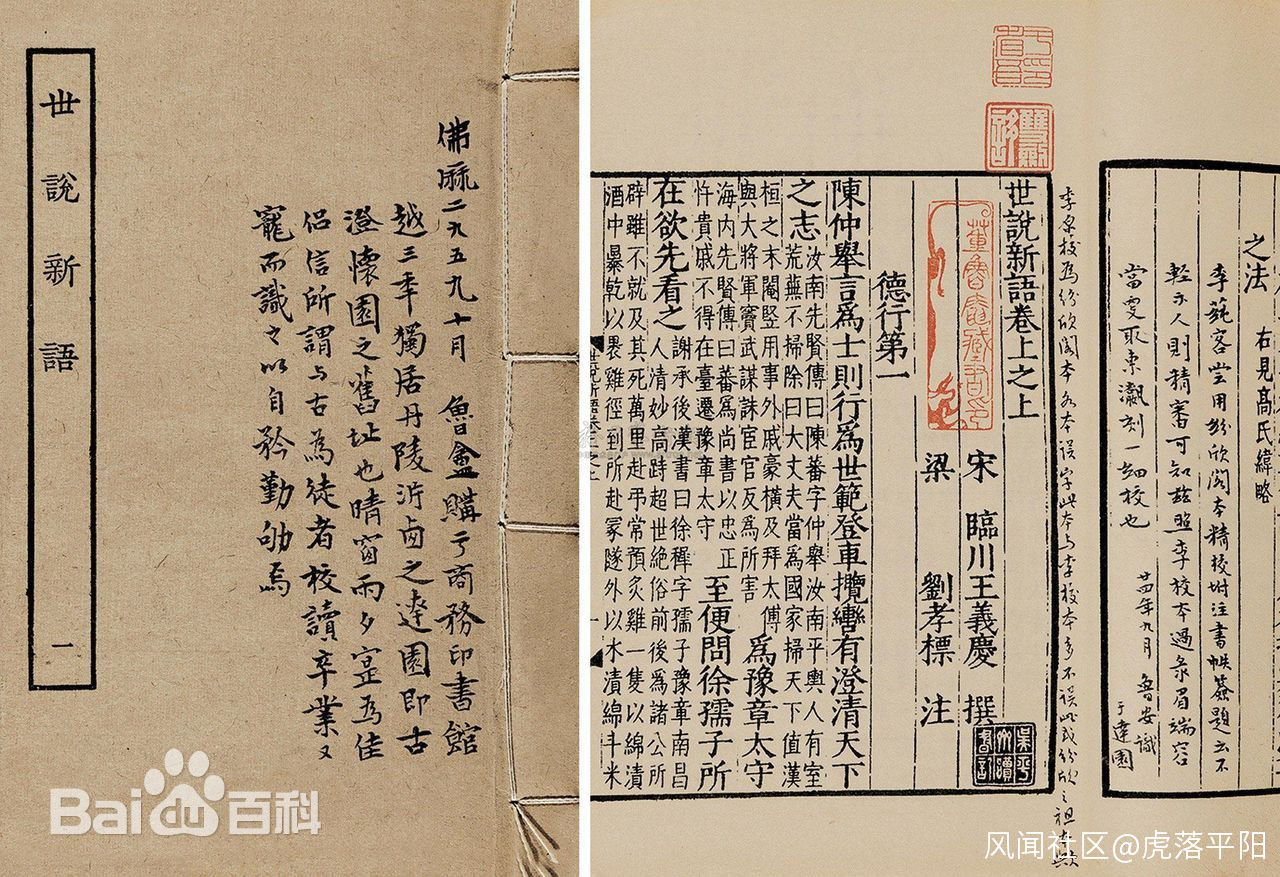 世說新語 一
佛厤二九五九十月 魯盦購于商務印書館
越三年獨居丹陵沜卤之達園即古
澄懷園之舊址也晴窗雨夕寔為佳
侣信所謂与古為徒者校讀卒業又
寵而識之以自矜勤劬焉
之法 右見高氏緯略
李蒓客嘗用紛欣閣本精校坿注書帙簽題云不
輕示人則精審可知茲照李校本過彔眉端容
當更取末瀛刻一細校也
廿四年九月 魯安識
于達園
李氏校為紛欣閣本
世說新語卷上之上
宋 臨川王義慶 撰
梁 劉孝標 注
德行第一
陳仲舉言為士則行為世範登車攬轡有澄清天下
之志汝南先賢傳曰陳蕃字仲舉汝南平輿人有室
荒蕪不掃除曰大丈夫當為國家掃天下值漢
桓之末閹竪用事外戚豪橫及拜太傅
與大將軍竇武謀誅宦官反為所害為豫章太守
海內先賢傳曰蕃為尚書以忠正
忤貴戚不得在臺遷豫章太守至便問徐孺子所
在欲先看之謝承後漢書曰徐穉字孺子豫章南昌
人清妙高跱超世絕俗前後為諸公所
辟雖不就及其死萬里赴弔常預炙雞一隻以綿漬
酒中暴乾以裹雞徑到所赴冢隧外以水漬綿斗米
Bai 百科
风闻社区@虎落平阳